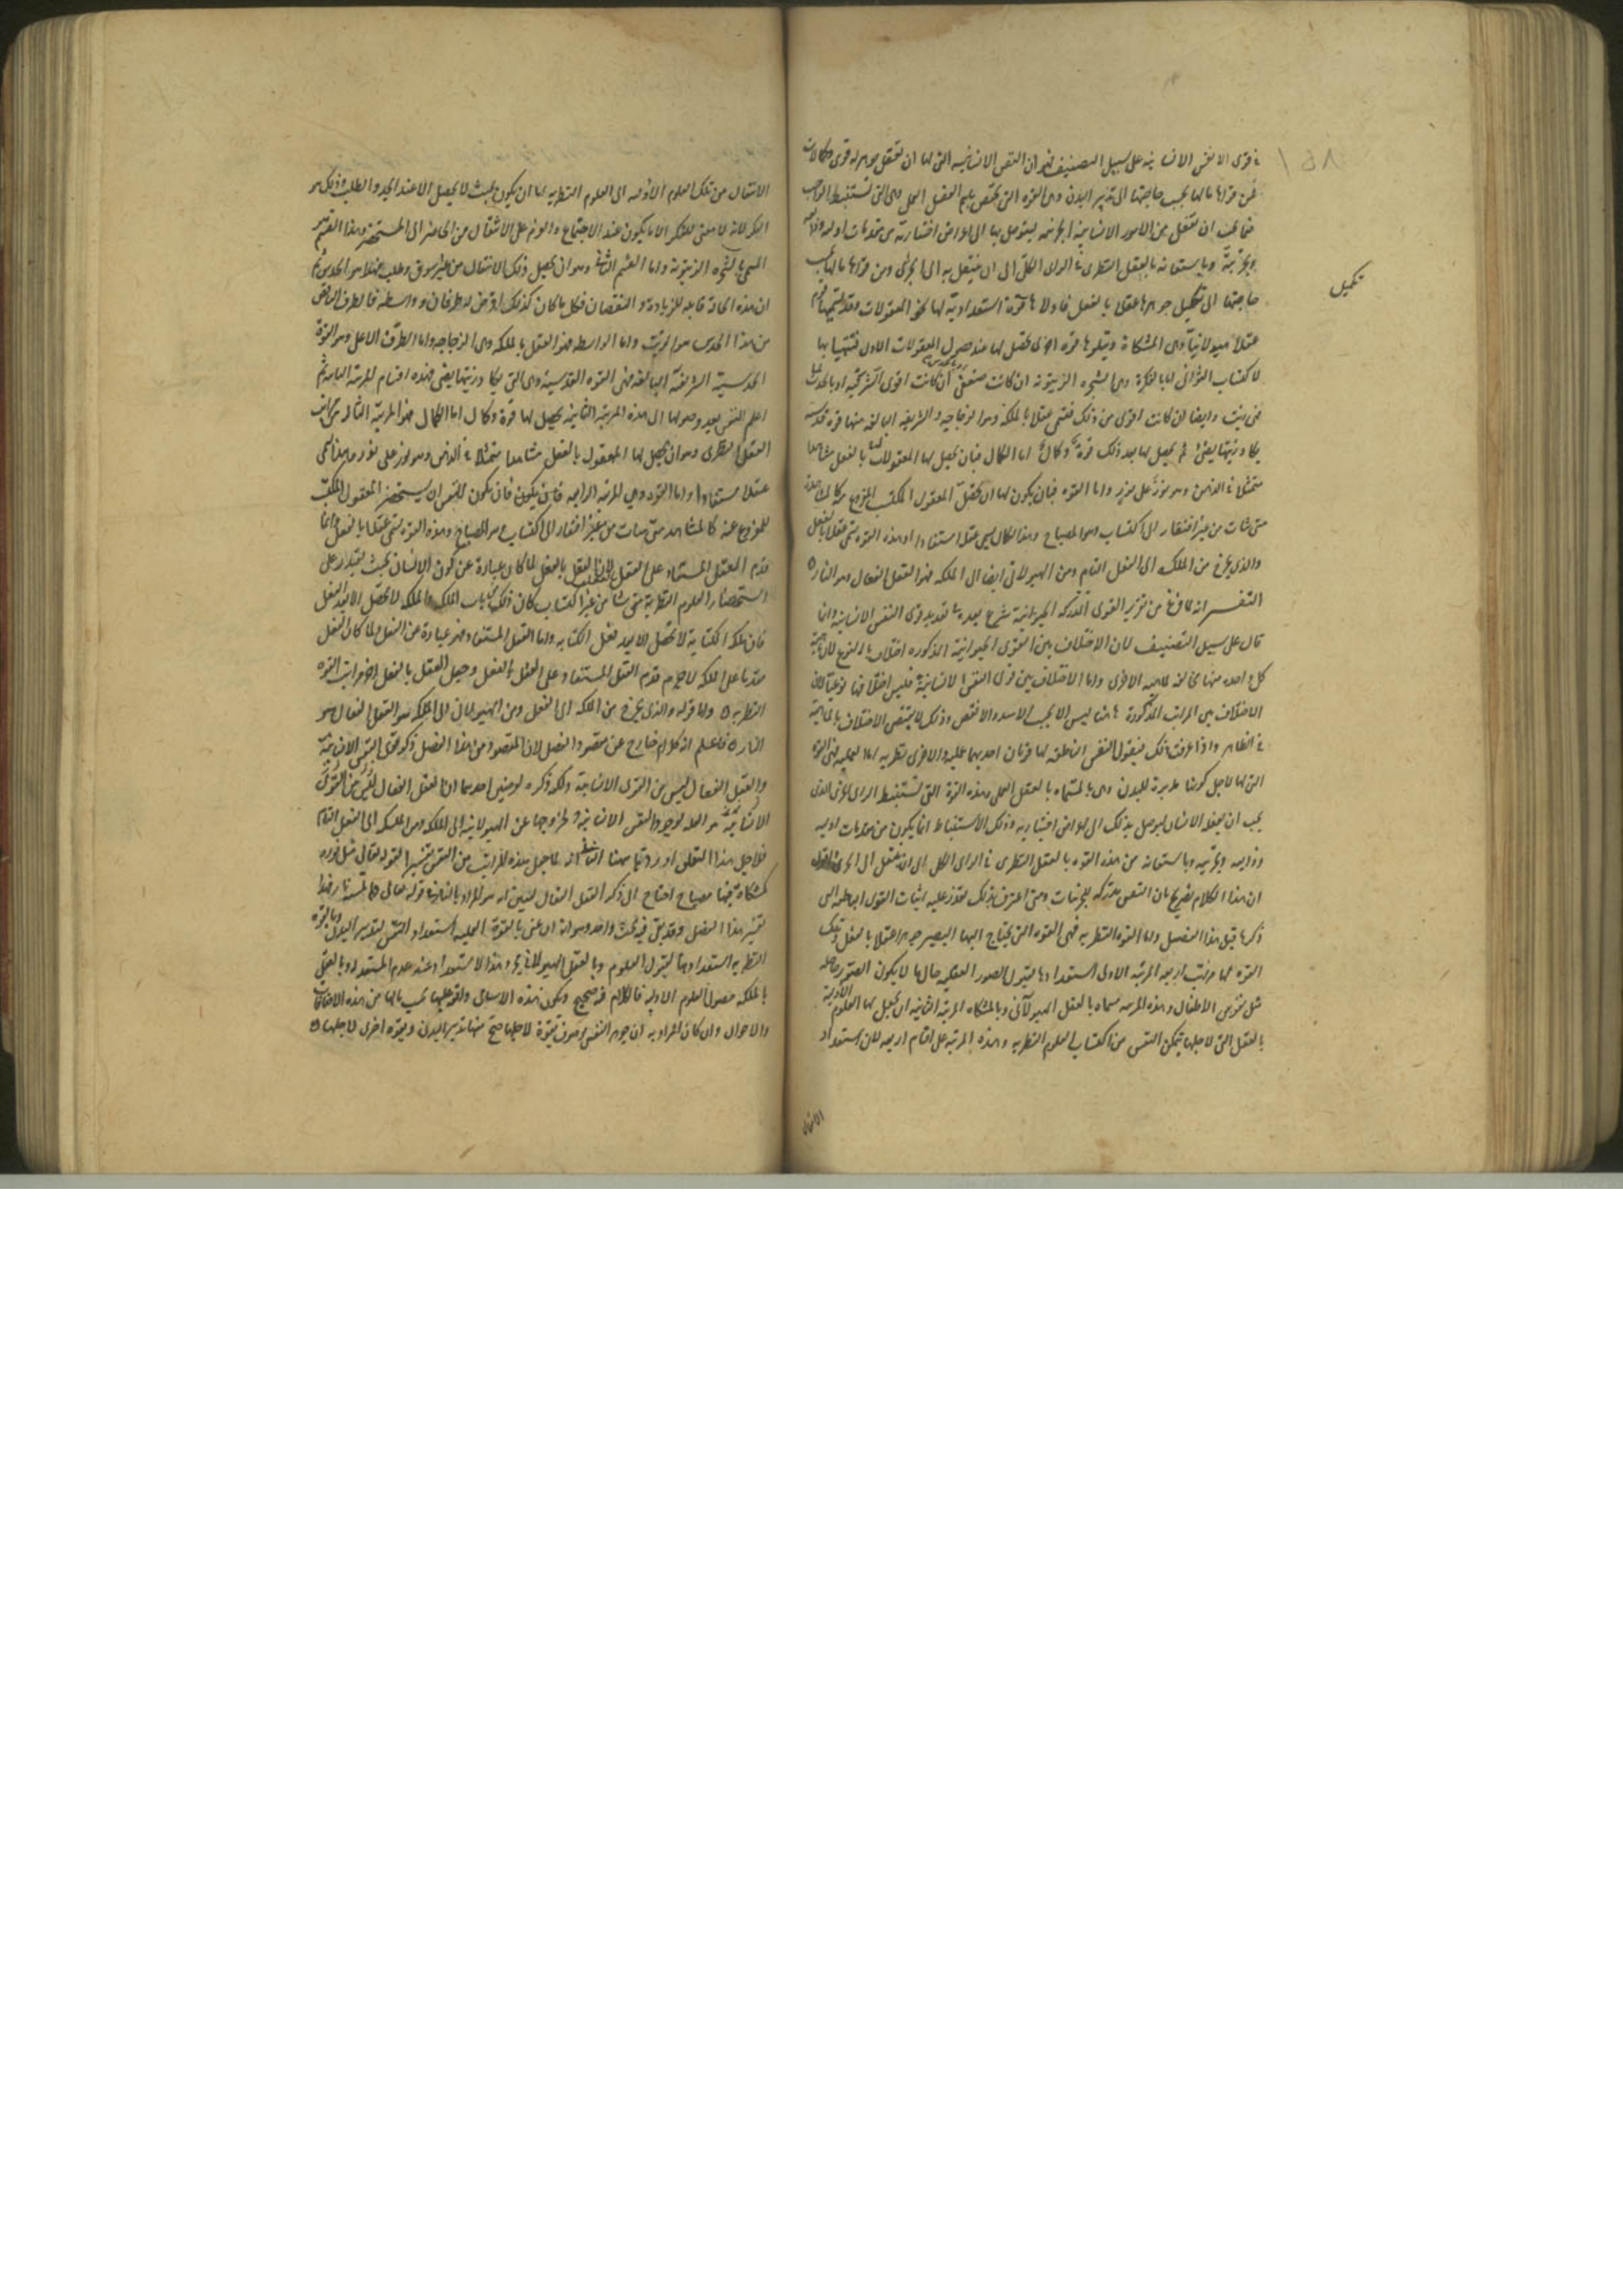 في قوى الانفس الانسانية على سبيل التصنيف فهو ان النفس الانسانية التي لها ان تعقل جوهر له قوى وكمالات
فمن قواها ما لها بحسب حاجتها الى تدبير البدن وهي القوة التي تختص باسم العقل العملي وهي التي تستنبط الواجب
فيما يجب ان تفعل من الامور الانسانية الجزئية ليتوصل بها الى اغراض اختيارية من مقدمات اولية وذايعة
وتجربية وباستعانة بالعقل النظري في الراي الكلي الى ان ينتقل به الى الجزئي ومن قواها ما لها بحسب
تكميل
حاجتها الى تكميل جوهرها عقلا بالفعل فاولاها قوة استعدادية لها نحو المعقولات وقد يسميها قوم
عقلا هيولانيا وهي المشكاة ويتلوها قوة اخرى تحصل لها عند حصول المعقولات الاول فتتهيا بها
لاكتساب الثواني اما بالفكرة وهي الشجرة الزيتونة ان كانت ضعفى او بالحدس
فهي زيت وايضا ان كانت اقوى من ذلك فتسمى عقلا بالملكة وهو الزجاجة والشريفة البالغة منها قوة قدسية
يكاد زيتها يضيء ثم يحصل لها بعد ذلك قوة وكمال اما الكمال فبان يحصل لها المعقولات بالفعل مشاهدة
متمثلة في الذهن وهو نور على نور واما القوة فبان يكون لها ان تحصل المعقول المكتسب المفروغ منه كالمشاهد
متى شات من غير افتقار الى اكتساب وهو المصباح وهذا الكمال يسمى عقلا مستفادا وهذه القوة تسمى عقلا بالفعل
والذي يخرج من الملكة الى الفعل التام ومن الهيولاني ايضا الى الملكة فهو العقل الفعال وهو النار
التفسير انه لما فرغ من تقرير القوى المدركة الحيوانية شرع بعده في تعديد قوى النفس الانسانية وانما
قال على سبيل التصنيف لان الاختلاف بين القوى الحيوانية المذكورة اختلاف بالنوع لان ماهية
كل واحد منها مخالفة لماهية الاخرى واما الاختلاف بين قوى النفس الانسانية فليس اختلافها نوعيا لان
الاختلاف بين المراتب المذكورة هاهنا ليس الا بحسب الاشد والانقص وذلك لا يقتضي الاختلاف بالماهية
في الظاهر واذا عرفت ذلك فنقول النفس الناطقة لها قوتان احديهما عملية والاخرى نظرية اما العملية فهي القوة
التي لها لاجل كونها مدبرة للبدن وهي المسماة بالعقل العملي وهذه القوة التي تستنبط الراي الجزئي الذي
يجب ان يفعله الانسان ليتوصل بذلك الى اغراض اختيارية وذلك الاستنباط انما يكون من مقدمات اولية
وذايعة وتجربية وباستعانة من هذه القوة بالعقل النظري في الراي الكلي الى ان ينتقل الى الجزئي واقول
ان هذا الكلام تصريح بان النفس مدركة للجزئيات ومتى اعترف بذلك تعذر عليه اثبات القوى الباطنة التي
ذكرها قبل هذا الفصل واما القوة النظرية فهي القوة التي يحتاج اليها ليصير جوهرا عقلا بالفعل وتلك
القوة لها مراتب اربعة المرتبة الاولى استعدادها لقبول الصور العقلية حال ما لا يكون الصور حاصلة
مثل نفوس الاطفال وهذه المرتبة مسماة بالعقل الهيولاني وبالمشكاة المرتبة الثانية ان يحصل لها العلوم الاولية
بالعقل التي لاجلها يتمكن النفس من اكتساب العلوم النظرية وهذه المرتبة على اقسام اربعة لان استعداد
الانتقال
الانتقال من تلك العلوم الاولية الى العلوم النظرية اما ان يكون بحيث لا يحصل الا عند الجد والطلب وذلك هو
الفكر لانه لا معنى للفكر الا ما يكون عند الاجتماع والعزم على الانتقال من الحاضر الى المستحضر وهذا القسم هو
المسمى بالشجرة الزيتونة واما القسم الثاني وهو ان يحصل ذلك الانتقال من غير شوق وطلب فهذا هو الحدس ثم
ان هذه الحالة قابلة للزيادة والنقصان فكل ما كان كذلك فرض له طرفان وواسطة فالطرف الناقص
من هذا الحدس هو الزيت واما الواسطة فهو العقل بالملكة وهي الزجاجة واما الطرف الاعلى وهو القوة
الحدسية الشريفة البالغة فهي القوة القدسية وهي التي يكاد زيتها يضيء فهذه اقسام المرتبة الثانية ثم
اعلم النفس بعد وصولها الى هذه المرتبة الثانية يحصل لها قوة وكمال اما الكمال فهو المرتبة الثالثة من مراتب
العقل النظري وهو ان يحصل لها المعقول بالفعل مشاهدا متمثلا في الذهن وهو نور على نور وهذا يسمى
عقلا مستفادا واما القوة وهي المرتبة الرابعة فان يكون للنفس ان يستحضر المعقول المكتسب
المفروغ عنه كالمشاهد متى شات من غير افتقار الى اكتساب هو المصباح وهذه القوة تسمى عقلا بالفعل وانما
قدم العقل المستفاد على العقل بالفعل لان العقل بالفعل لما كان عبارة عن كون الانسان بحيث يقدر على
استحضار العلوم النظرية متى شا من غير اكتساب كان ذلك من باب الملكة والملكة لا تحصل الا بعد الفعل
فان ملكة الكتابة لا تحصل الا بعد فعل الكتابة واما العقل المستفاد فهو عبارة عن الفعل ولما كان الفعل
متقدما على الملكة لا جرم قدم العقل المستفاد على العقل بالفعل وجعل العقل بالفعل اخر مراتب القوة
النظرية واما قوله والذي يخرج من الملكة الى الفعل ومن الهيولاني الى الملكة هو العقل الفعال هو
النار فاعلم انه كلام خارج عن مقصود الفصل لان المقصود من هذا الفصل ذكر قوى النفس الانسانية
والعقل الفعال ليس من القوى الانسانية ولكنه ذكره لوجهين احدهما ان العقل الفعال ليس من القوى
الانسانية هو العلة لوجود النفس الانسانية ولخروجها عن الهيولانية الى الملكة ومن الملكة الى الفعل التام
فلاجل هذا التعلق اورده هاهنا الثاني انه لما جعل هذه المراتب من النفس تفسيرا لقوله تعالى مثل نوره
كمشكاة فيها مصباح احتاج الى ذكر العقل الفعال ليبين انه هو المراد بالنار في قوله تعالى ولو لم تمسسه نار فهذا
تفسير هذا الفصل وقد بقي فيه بحث واحد وهو انه ان عنى بالقوة العملية استعداد النفس لتدبير البدن وبالقوة
النظرية استعدادها لقبول العلوم وبالعقل الهيولاني هذا الاستعداد عند عدم المستعد له وبالعقل
بالملكة حصول العلوم الاولية فالكلام فيه صحيح ويكون هذه الاسامي واقعة عليها بحسب ما لها من هذه الاضافات
والاحوال وان كان المراد به ان جوهر النفس موصوف بقوة لاجلها صح منها تدبير البدن وبقوة اخرى لاجلها